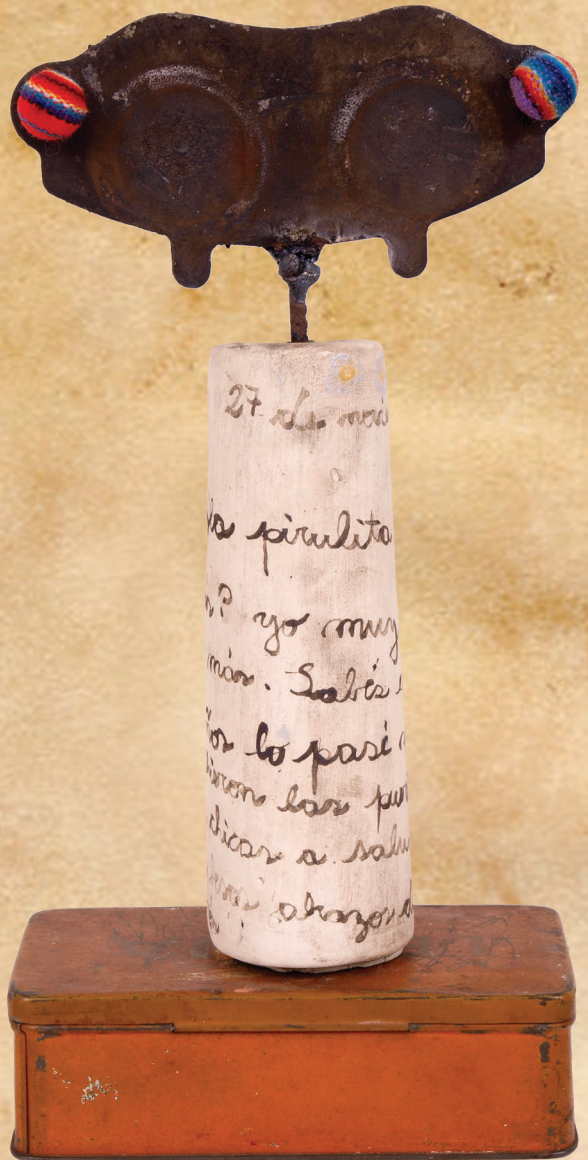 27 de novi
la pirulita
n? yo muy
más. Sabés
ños lo pasé
ieron las puer
chicas a salu
abrazos d